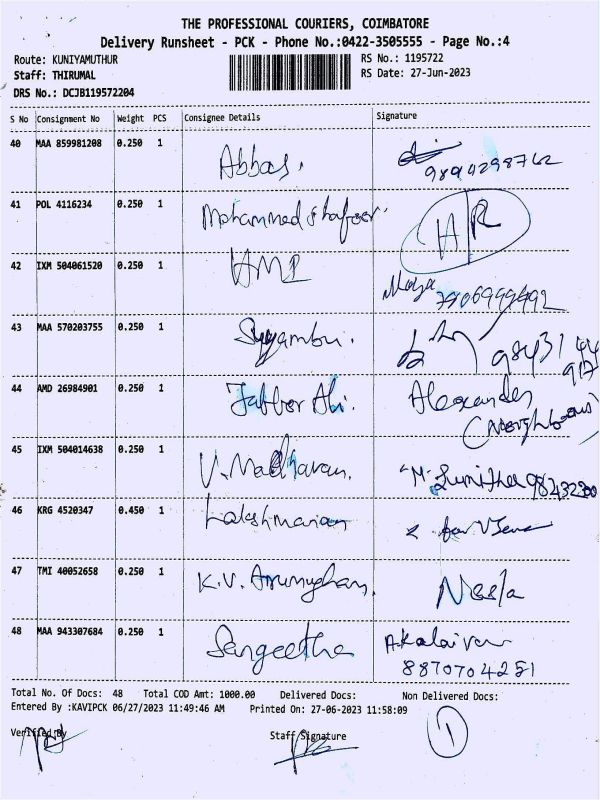 THE PROFESSIONAL COURIERS, COIMBATORE
Delivery Runsheet - PCK - Phone No.:0422-3505555 - Page No.:4
Route: KUNIYAMUTHUR RS No.: 1195722
Staff: THIRUMAL RS Date: 27-Jun-2023
DRS No.: DCJB119572204
S No Consignment No Weight PCS Consignee Details Signature
40 MAA 859981208 0.250 1 Abbas.
41 POL 4116234 0.250 1 Mohammed
42 IXM 504061520 0.250 1
43 MAA 570203755 0.250 1 Syyambu.
44 AMD 26984901 0.250 1 Jabbor Ali. Alexander
45 IXM 504014638 0.250 1 V. Madhavan.
46 KRG 4520347 0.450 1 Lakshmanan
47 TMI 40052658 0.250 1 K.V. Arumugham. Neela
48 MAA 943307684 0.250 1 Sangeetha A.Kalaivani
8870704251
Total No. Of Docs: 48 Total COD Amt: 1000.00 Delivered Docs: Non Delivered Docs:
Entered By :KAVIPCK 06/27/2023 11:49:46 AM Printed On: 27-06-2023 11:58:09
1
Verified By Staff Signature